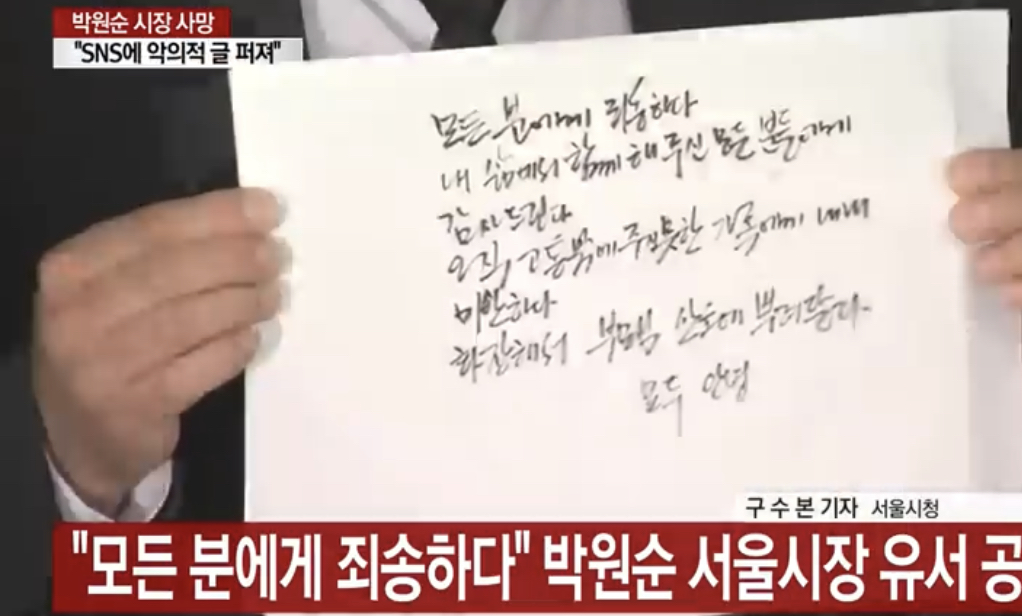 박원순 시장 사망
"SNS에 악의적 글 퍼져"
모든 분에게 죄송하다
내 삶에서 함께 해 주신 모든 분들에게
감사드린다
오직 고통밖에 주지 못한 가족에게 내내
미안하다
화장해서 부모님 산소에 뿌려달라.
모두 안녕
구 수 본 기자 서울시청
"모든 분에게 죄송하다" 박원순 서울시장 유서 공